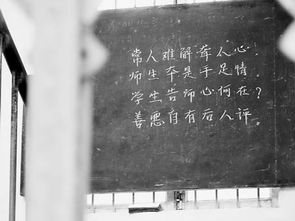 常人难解聋人心,
师生本是手足情.
学生告师心何在?
善恶自有后人评.